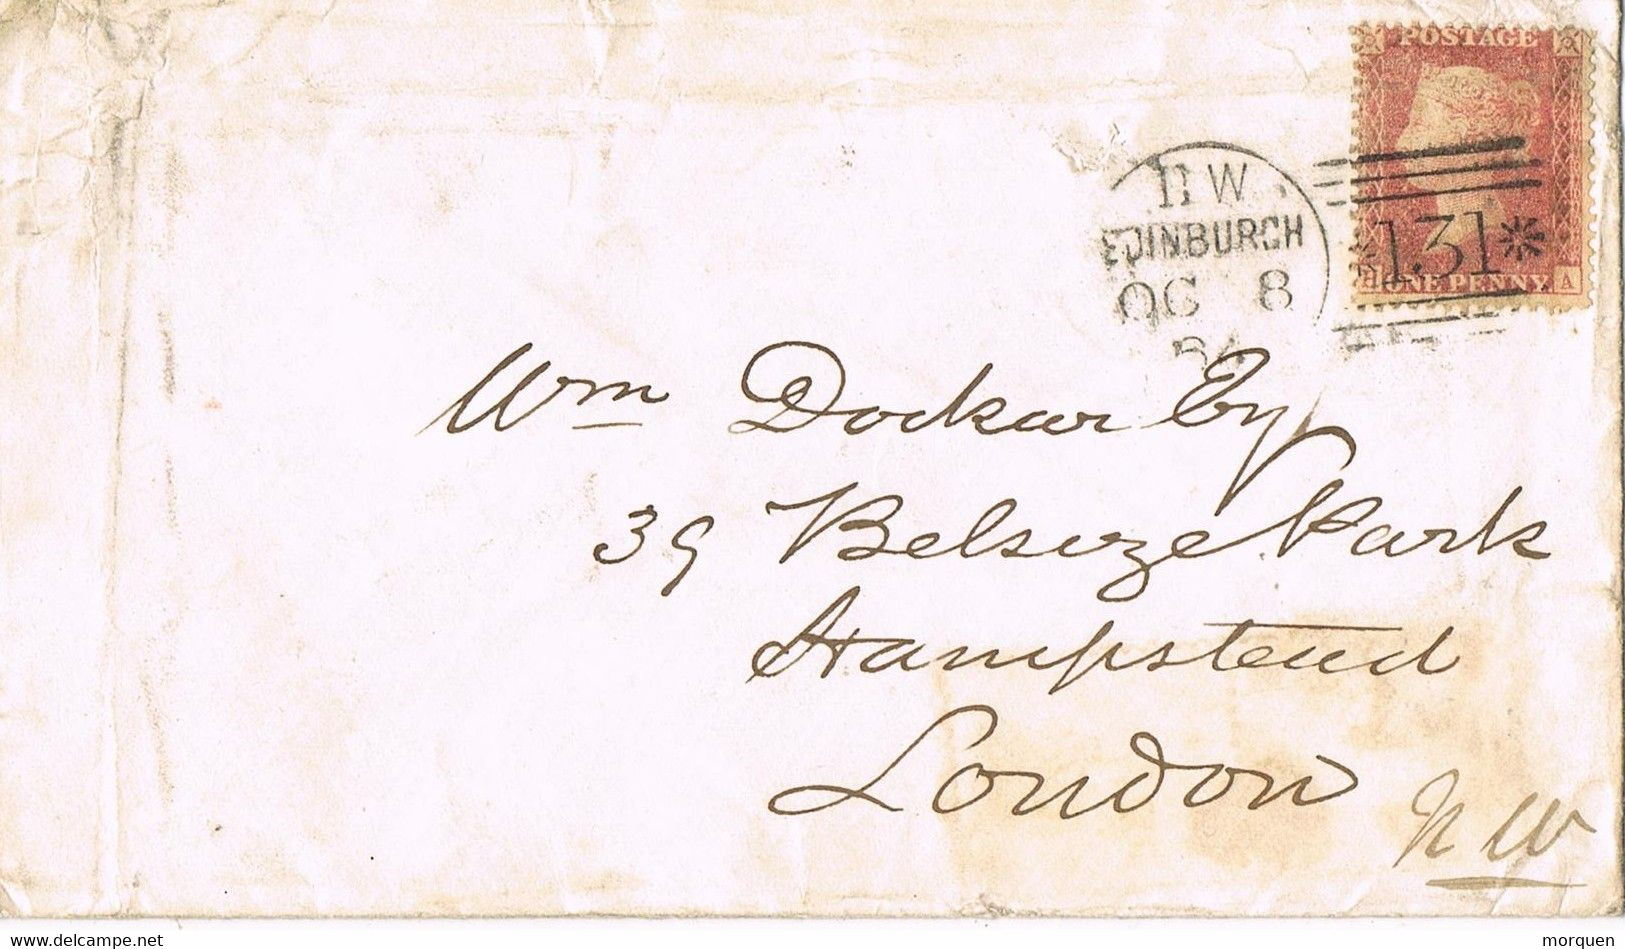 POSTAGE
W
EDINBURGH
OC 8
131
ONE PENNY A
Wm Dockar Esq
39 Belsize Park
Hampstead
London
NW
www.delcampe.net
morquen